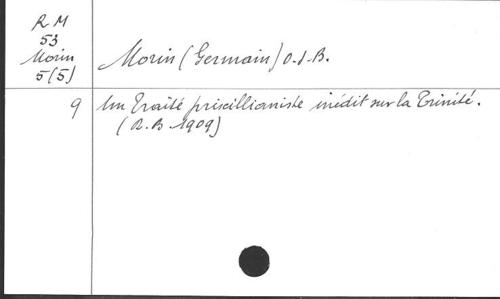 R M
53
Morin
5(5)
Morin (Germain) O.S.B.
9
Un Traité priscillianiste inédit sur la Trinité.
(R.B. 1909)